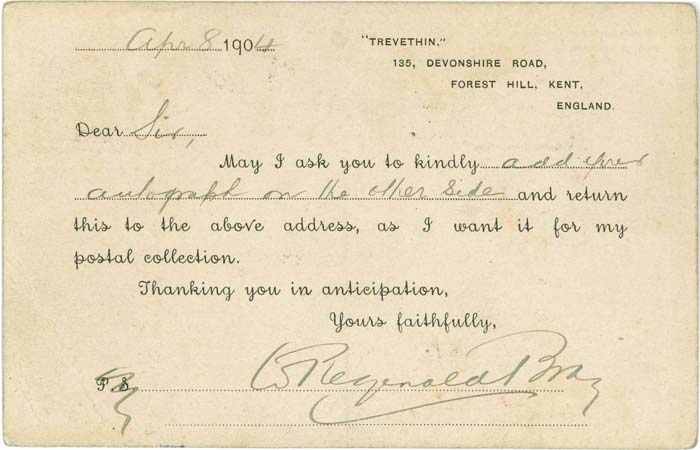 Apr 8 1904
"TREVETHIN,"
135, DEVONSHIRE ROAD,
FOREST HILL, KENT,
ENGLAND.
Dear Sir,
May I ask you to kindly add your
autograph on the other side and return
this to the above address, as I want it for my
postal collection.
Thanking you in anticipation,
Yours faithfully,
W Reginald Bray
P S